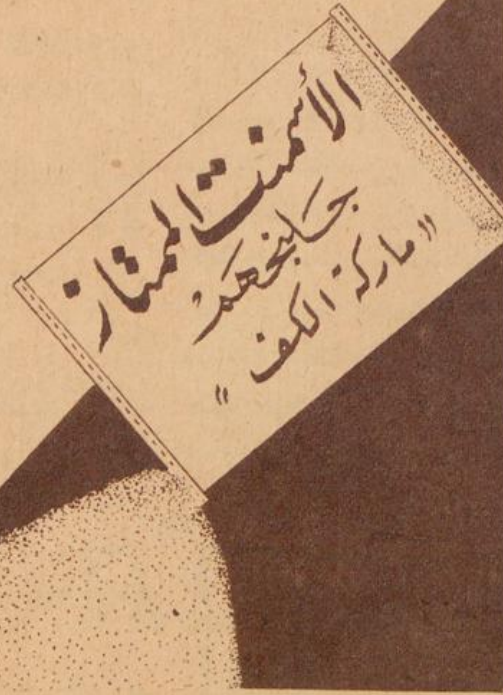 الأسمنت الممتاز
جلنجهم
«ماركة الكف»